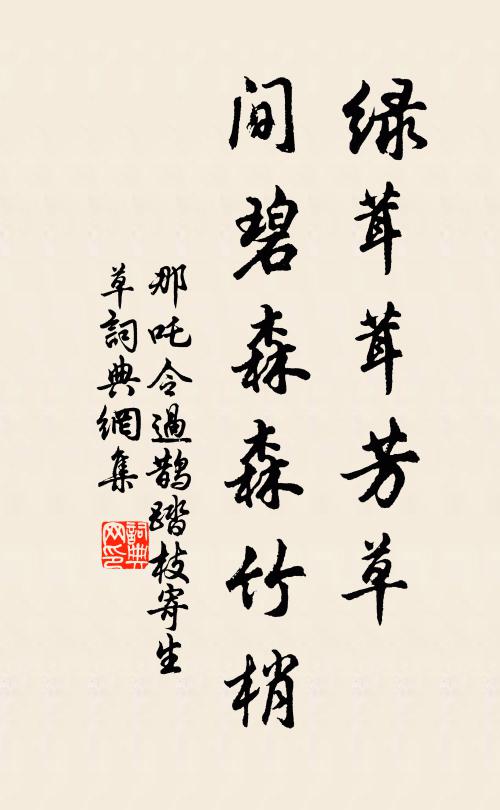 绿茸茸芳草
间碧森森竹梢
那吒令過鵲踏枝寄生
草詞典網集
詞典网印